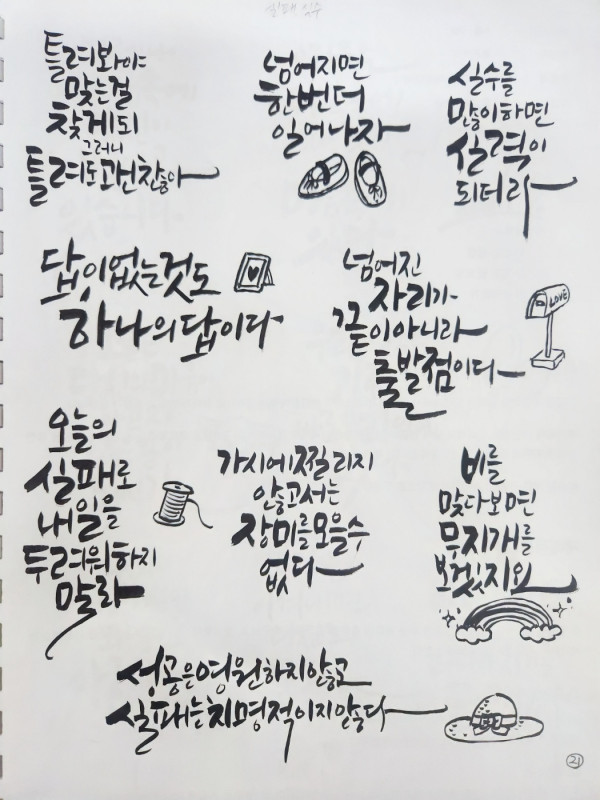 실패 실수
틀려봐야
맞는걸
찾게되
그러니
틀려도괜찮아
넘어지면
한번더
일어나자
실수를
많이하면
실력이
되더라
답이없는것도
하나의답이다
넘어진
자리가
끝이아니라
출발점이다
LOVE
오늘의
실패로
내일을
두려워하지
말라
가시에찔리지
않고서는
장미를모을수
없다
비를
맞다보면
무지개를
보겠지요
성공은영원하지않고
실패는치명적이지않다
21